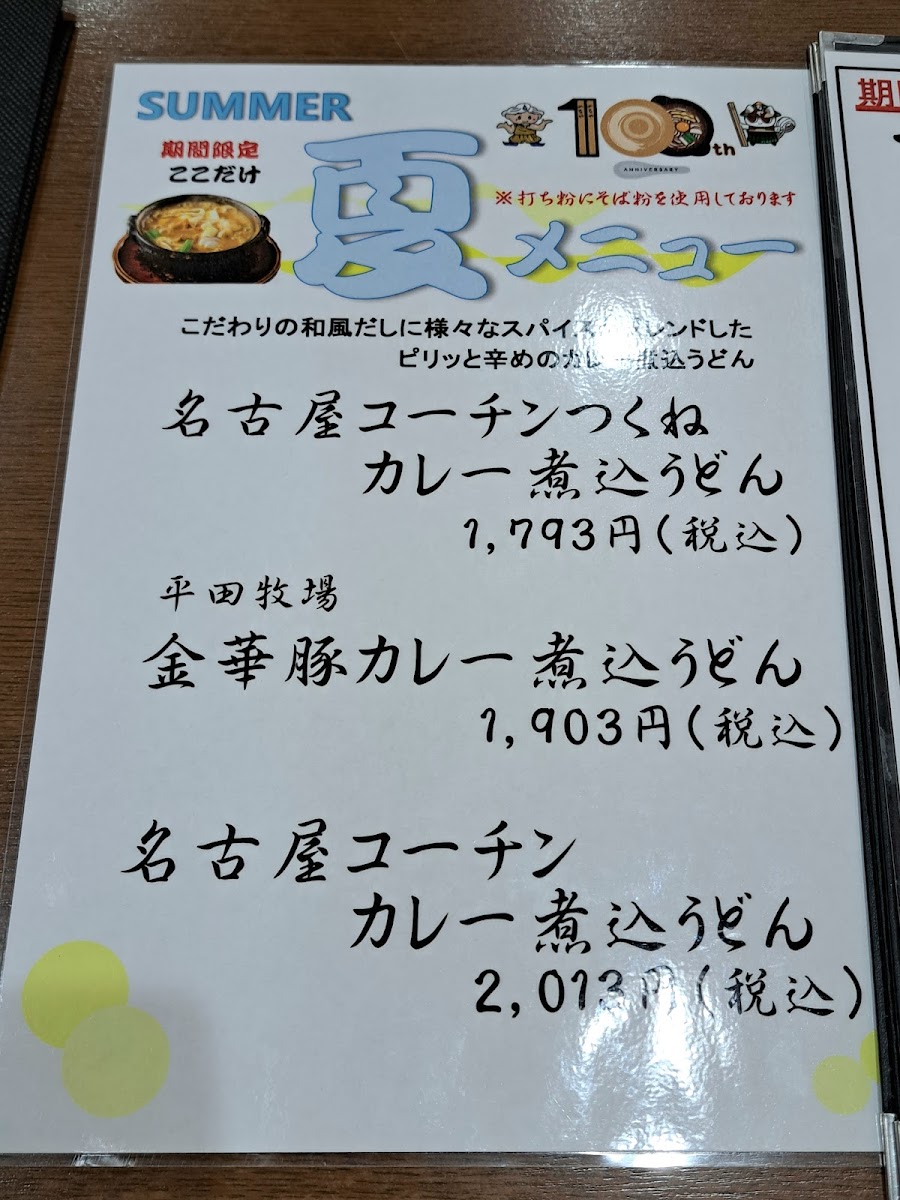 SUMMER
期間限定
ここだけ
100th
ANNIVERSARY
※打ち粉にそば粉を使用しております
夏メニュー
こだわりの和風だしに様々なスパイス レンドした
ピリッと辛めのカレー煮込うどん
名古屋コーチンつくね
カレー煮込うどん
1,793円(税込)
平田牧場
金華豚カレー煮込うどん
1,903円(税込)
名古屋コーチン
カレー煮込うどん
2,013円(税込)
期